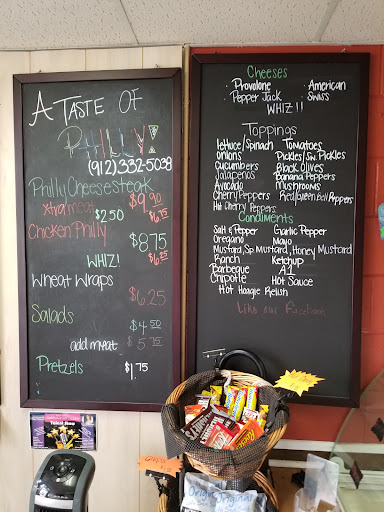 A TASTE OF
PHILLY!
(912)332-5038
Philly Cheesesteak $9.90
xtra meat $2.50 $6.75
Chicken Philly $8.75
WHIZ! $6.25
Wheat Wraps $6.25
Salads $4.50
add meat $5.75
Pretzels $1.75
Cheeses
Provolone American
Pepper Jack Swiss
WHIZ!!
Toppings
lettuce/Spinach Tomatoes
Onions Pickles/Sw. Pickles
Cucumbers Black Olives
Jalapenos Banana Peppers
Avocado Mushrooms
Cherry Peppers Red/Green Bell Peppers
Hot Cherry Peppers
Condiments
Salt & Pepper Garlic Pepper
Oregano Mayo
Mustard, Sp. Mustard, Honey Mustard
Ranch Ketchup
Barbeque A.1
Chipotle Hot Sauce
Hot Hoagie Relish
Like our Facebook
Talent Show
Original